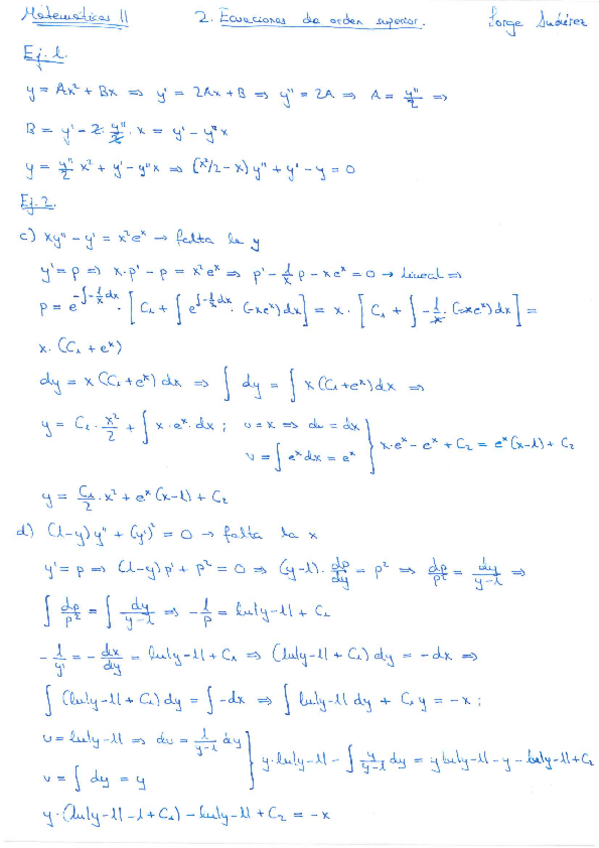 Matemáticas II 2. Ecuaciones de orden superior. Jorge Suárez
Ej. 1.
y = Ax² + Bx ⇒ y' = 2Ax + B ⇒ y'' = 2A ⇒ A = y''/2 ⇒
B = y' - 2·y''/2·x = y' - y''x
y = y''/2 x² + y' - y''x ⇒ (x²/2 - x)y'' + y' - y = 0
Ej. 2.
c) xy'' - y' = x²eˣ → falta la y
y' = p ⇒ x·p' - p = x²eˣ ⇒ p' - 1/x p - xeˣ = 0 → Lineal ⇒
p = e^(-∫-1/x dx)·[C₁ + ∫ e^(∫-1/x dx)·(-xeˣ)dx] = x·[C₁ + ∫ -1/x·(-xeˣ)dx] =
x·(C₁ + eˣ)
dy = x(C₁ + eˣ)dx ⇒ ∫ dy = ∫ x(C₁ + eˣ)dx ⇒
y = C₁·x²/2 + ∫ x·eˣ·dx ; u = x ⇒ du = dx
v = ∫ eˣdx = eˣ } x·eˣ - eˣ + C₂ = eˣ(x-1) + C₂
y = C₁/2·x² + eˣ(x-1) + C₂
d) (1-y)y'' + (y')² = 0 → falta la x
y' = p ⇒ (1-y)p' + p² = 0 ⇒ (y-1)·dp/dy = p² ⇒ dp/p² = dy/y-1 ⇒
∫ dp/p² = ∫ dy/y-1 ⇒ -1/p = ln|y-1| + C₁
-1/y' = -dx/dy = ln|y-1| + C₁ ⇒ (ln|y-1| + C₁)dy = -dx ⇒
∫ (ln|y-1| + C₁)dy = ∫ -dx ⇒ ∫ ln|y-1|dy + C₁y = -x ;
u = ln|y-1| ⇒ du = 1/y-1 dy
v = ∫ dy = y } y·ln|y-1| - ∫ y/y-1 dy = y ln|y-1| - y - ln|y-1| + C₂
y·(ln|y-1| - 1 + C₁) - ln|y-1| + C₂ = -x